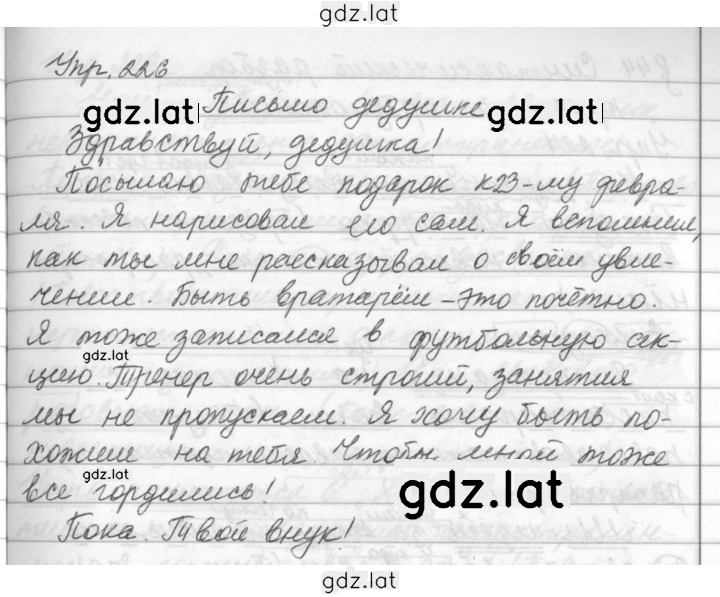 gdz.lat
Упр. 226
gdz.lat Письмо дедушке gdz.lat
Здравствуй, дедушка!
Посылаю тебе подарок к 23-му февра-
ля. Я нарисовал его сам. Я вспомнил,
как ты мне рассказывал о своём увле-
чении. Быть вратарём – это почётно.
Я тоже записался в футбольную сек-
gdz.lat
цию. Тренер очень строгий, занятия
мы не пропускаем. Я хочу быть по-
хожим на тебя. Чтобы мной тоже
gdz.lat
все гордились! gdz.lat
Пока. Твой внук!
gdz.lat